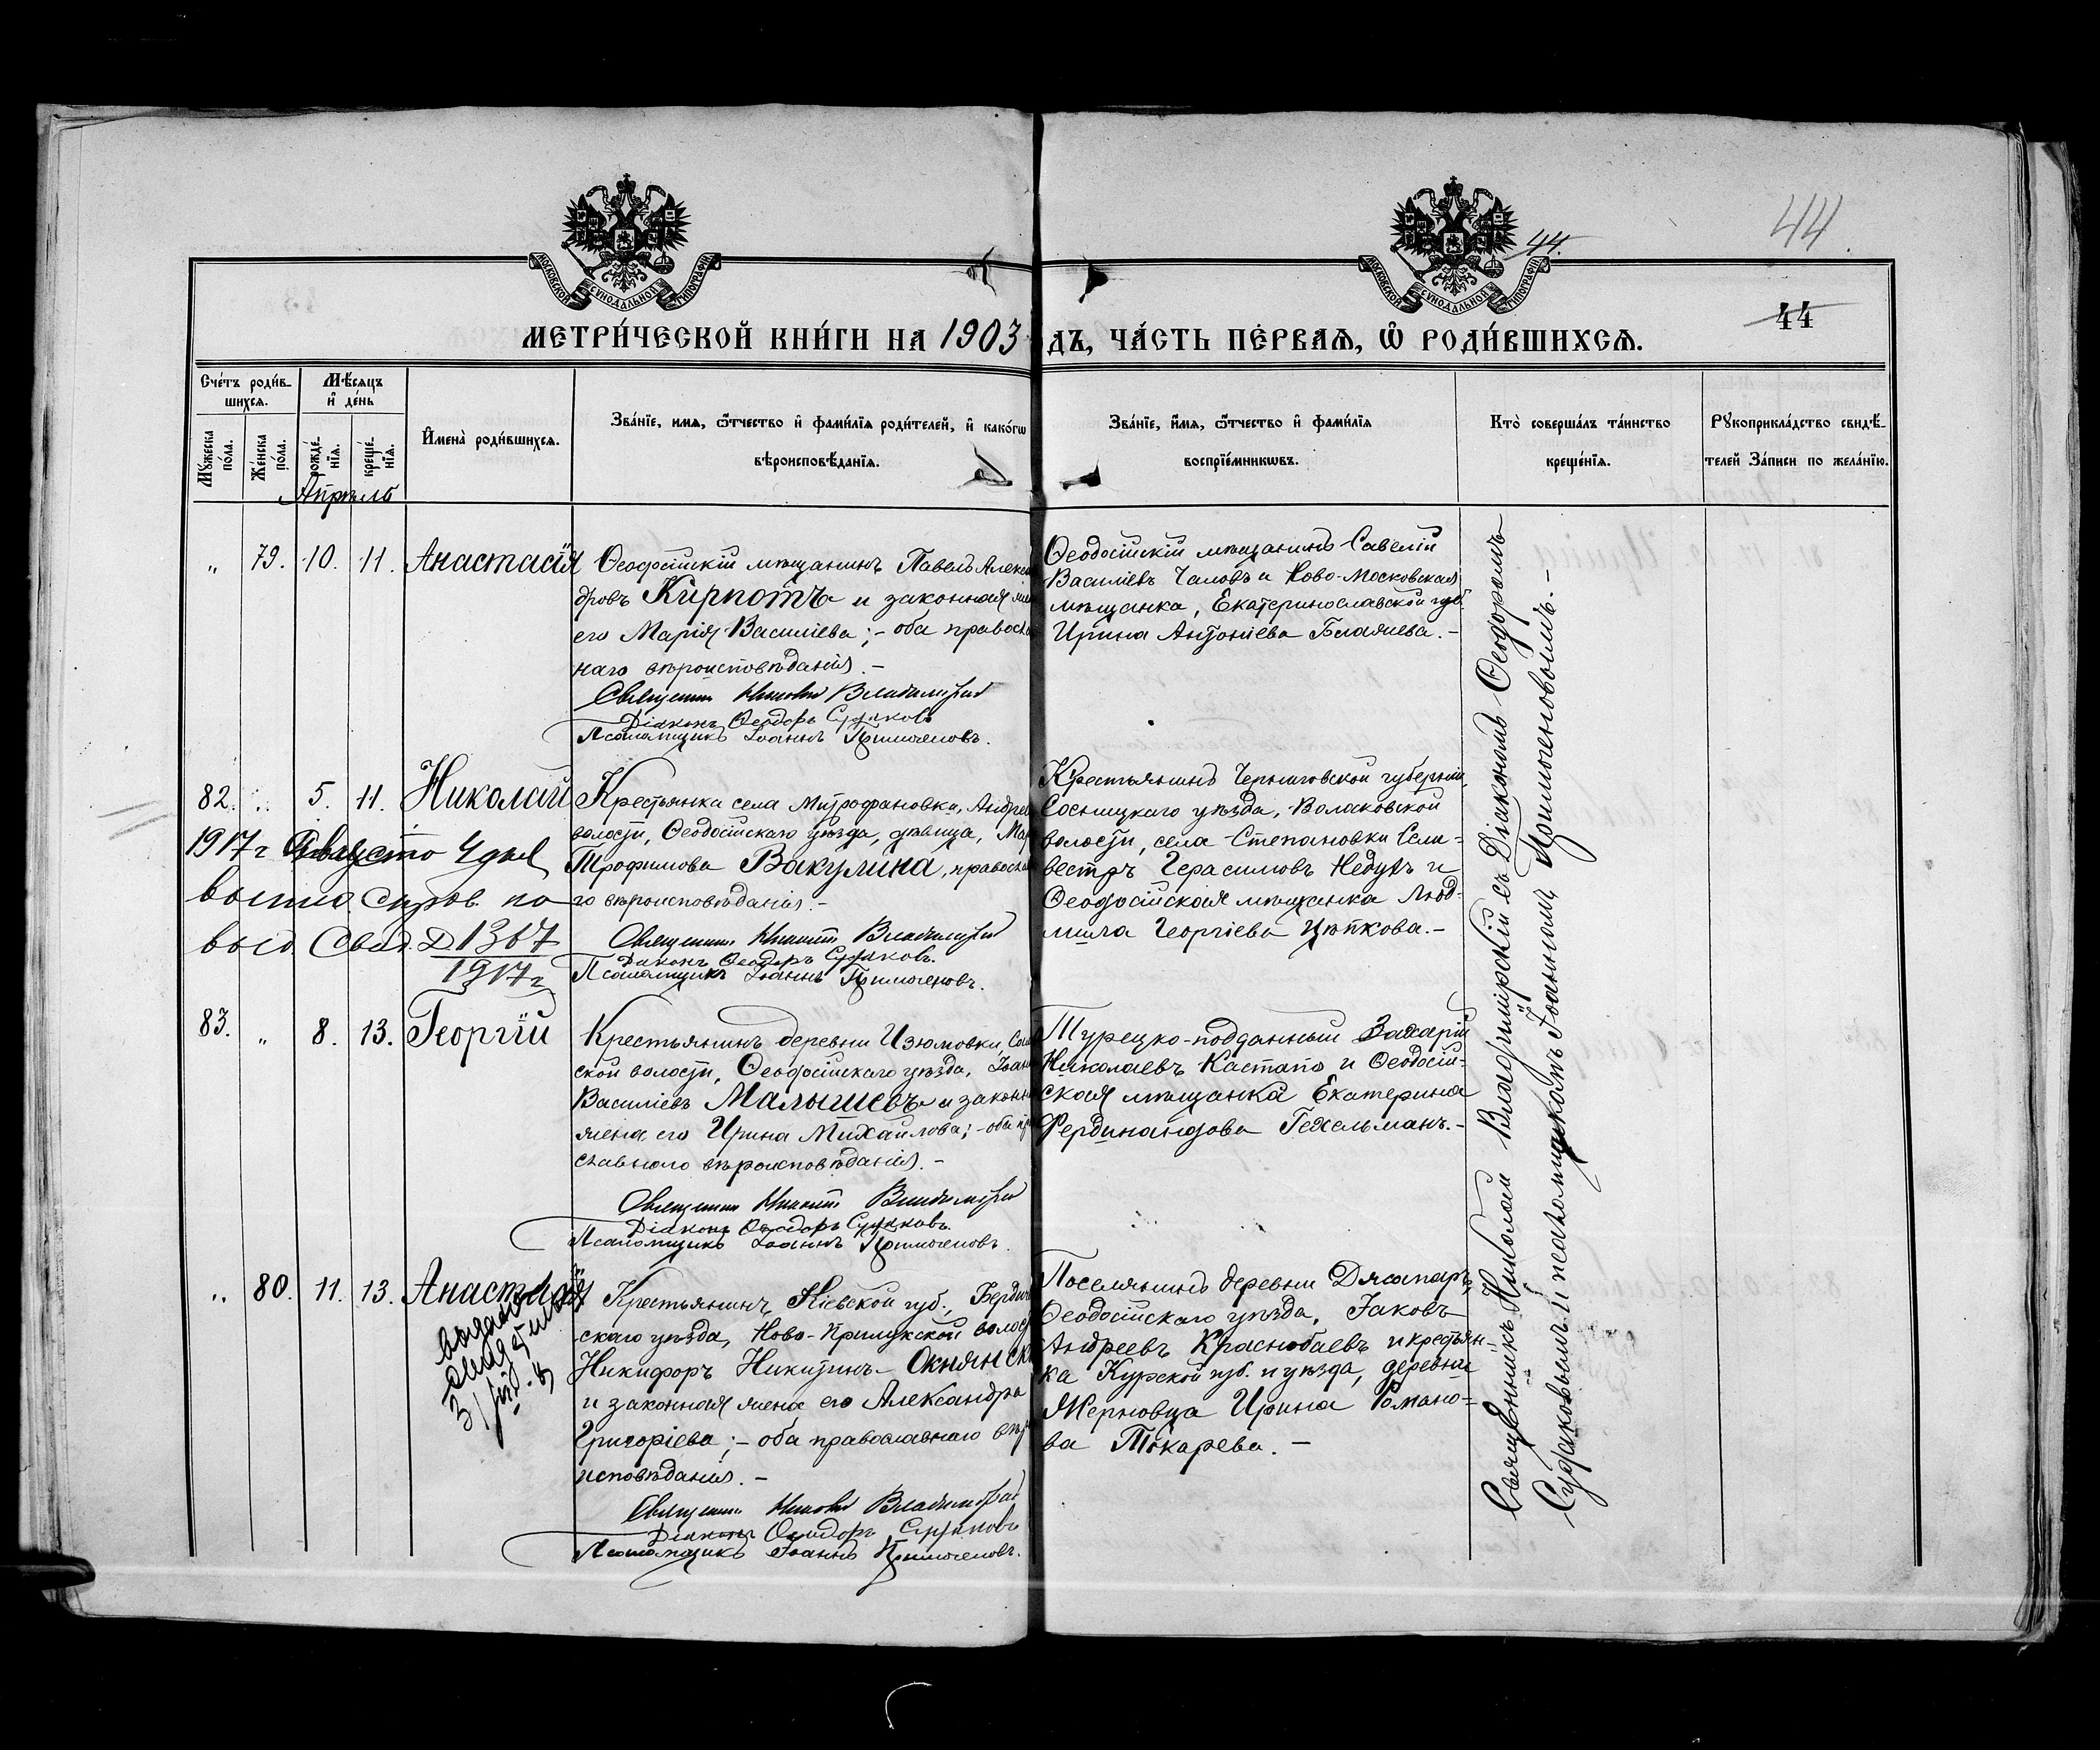 44.
44
44
МОСКОВСКОЙ СѴНОДАЛЬНОЙ ТИПОГРАФІИ
МОСКОВСКОЙ СѴНОДАЛЬНОЙ ТИПОГРАФІИ
МЕТРИ́ЧЕСКОЙ КНИ́ГИ НА 1903 ДЪ, ЧА́СТЬ ПЕ́РВАѦ, Ѡ РОДИ́ВШИХСѦ.
Сче́тъ роди́в-
шихсѧ.
Мꙋ́жеска по́ла.
Же́нска по́ла.
Мѣ́сѧцъ
и҆ де́нь
рожде́нїѧ.
креще́нїѧ.
И҆мена̀ роди́вшихсѧ.
Зва́нїе, имѧ, ѻ҆́тчество и҆ фами́лїѧ роди́телей, и҆ како́гѡ
вѣроисповѣ́данїѧ.
Зва́нїе, и҆́мѧ, ѻ҆́тчество и҆ фами́лїѧ
воспрїе́мникѡвъ.
Кто̀ соверша́лъ та́инство
креще́нїѧ.
Рꙋкоприкла́дство свидѣ́-
телей За́писи по жела́нїю.
Апрѣль
„ 79. 10. 11. Анастасія
Ѳеодосійскій мѣщанинъ Павелъ Алекса
дровъ Кирпотъ и законная
его Марія Василіева; - оба правосла
наго вѣроисповѣданія. -
Священникъ Николай Владимірскій
Діаконъ Ѳеодоръ Судаковъ
Псаломщикъ Іоаннъ Примогеновъ.
Ѳеодосійскій мѣщанинъ Савелій
Василіевъ Чаловъ и Ново-Московская
мѣщанка, Екатеринославской губ.
Ирина Антоніева
82. „ 5. 11. Николай
1917 г Августо 4 дня
выд. Свид. 1367
1917 г
Крестьянка села Митрофановки, Андре
волости, Ѳеодосійскаго уѣзда, дѣвица, Мар
Трофимова Вакулина, правосла
го вѣроисповѣданія. -
Священникъ Николай Владимірскій
Діаконъ Ѳеодоръ Судаковъ.
Псаломщикъ Іоаннъ Примогеновъ.
Крестьянинъ Черниговской губерніи,
Сосницкаго уѣзда, Волосковской
волости, села Степановки Сели-
вестръ Герасимовъ Недухъ и
Ѳеодосійская мѣщанка Люд-
мила Георгіева Цѣпкова. -
83. „ 8. 13. Георгій
Крестьянинъ деревни Изюмовки, Сал
ской волости, Ѳеодосійскаго уѣзда, Іоан
Василіевъ Малышевъ и законн
жена его Ирина Михайлова; - оба пр
славнаго вѣроисповѣданія. -
Священникъ Николай Владимірскій
Діаконъ Ѳеодоръ Судаковъ.
Псаломщикъ Іоаннъ Примогеновъ.
Турецко-подданный Захарій
Николаевъ Кастато и Ѳеодосій-
ская мѣщанка Екатерина
Фердинандова Гехельманъ. -
„ 80. 11. 13. Анастасія
Крестьянинъ Кіевской губ., Берди
скаго уѣзда, Ново-Прилукской волос
Никифоръ Никитинъ Окнянск
и законная жена его Александра
Григоріева; - оба православнаго вѣр
исповѣданія. -
Священникъ Николай Владимірскій
Діаконъ Ѳеодоръ Судаковъ
Псаломщикъ Іоаннъ Примогеновъ.
Поселянинъ деревни
Ѳеодосійскаго уѣзда, Іаковъ
Андреевъ Краснобаевъ и крестьян-
ка Курской губ. и уѣзда, деревни
Жерновца Ирина Романо-
ва Токарева. -
Священникъ Николай Владимірскій съ Діакономъ Ѳеодоромъ
Судаковымъ и псаломщикомъ Іоанномъ Примогеновымъ. -